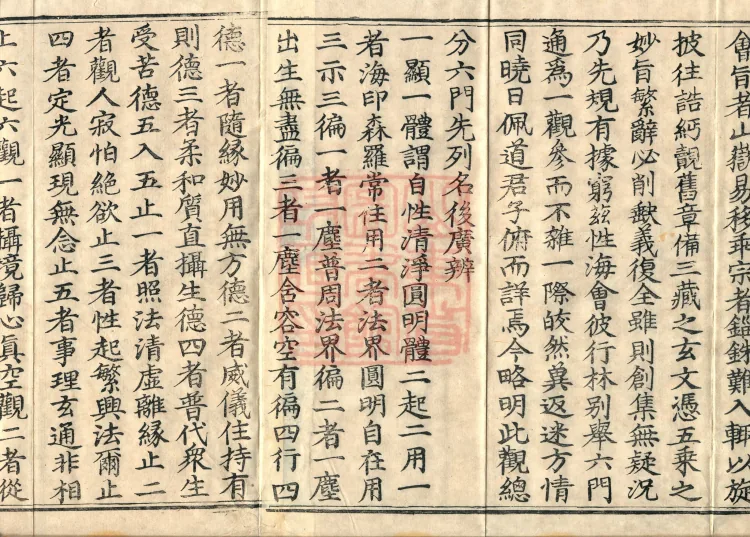 會旨者山嶽易移乖宗者錙銖難入輒以旋
披往誥紉覩舊章備三藏之玄文憑五乘之
妙旨繁辭必削缺義復全雖則創集無疑況
乃先規有據窮茲性海會彼行林別舉六門
通爲一觀參而不雜一際皎然冀返迷方情
同曉日佩道君子俯而詳焉今略明此觀總
分六門先列名後廣辨
一顯一體謂自性清淨圓明體二起二用一
者海印森羅常住用二者法界圓明自在用
三示三徧一者一塵普周法界徧二者一塵
出生無盡徧三者一塵含容空有徧四行四
德一者隨緣妙用無方德二者威儀住持有
則德三者柔和質直攝生德四者普代衆生
受苦德五入五止一者照法清虛離緣止二
者觀人寂怕絶欲止三者性起繁興法爾止
四者定光顯現無念止五者事理玄通非相
止六起六觀一者攝境歸心眞空觀二者從